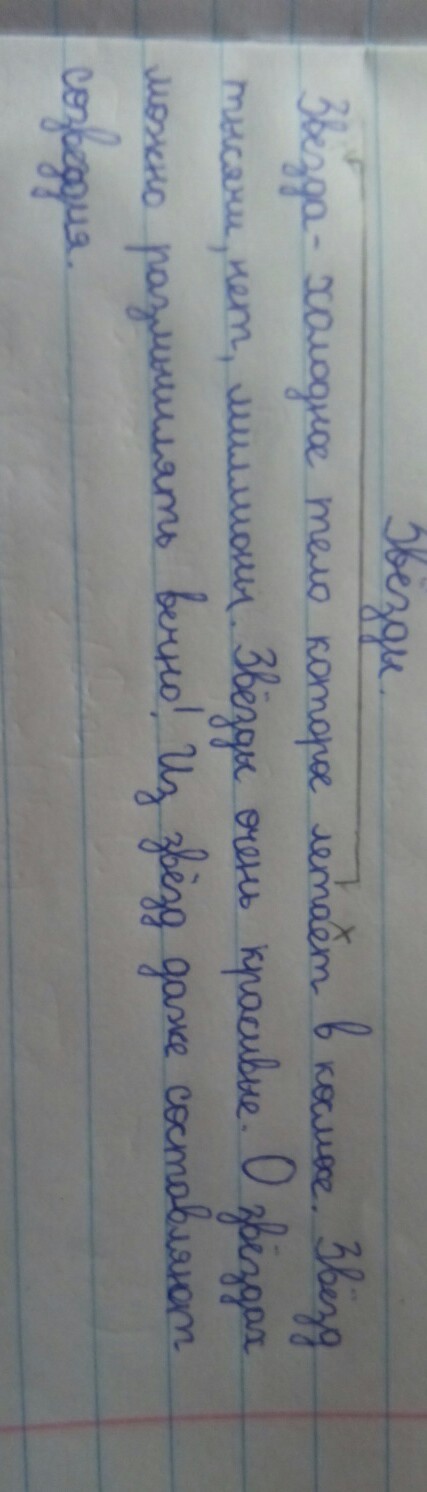 Звёзды.
Звезда - холодное тело которое летает в космосе. Звёзд
тысячи, нет, миллионы. Звёзды очень красивые. О звёздах
можно размышлять вечно! Из звёзд даже составляют
созвездия.